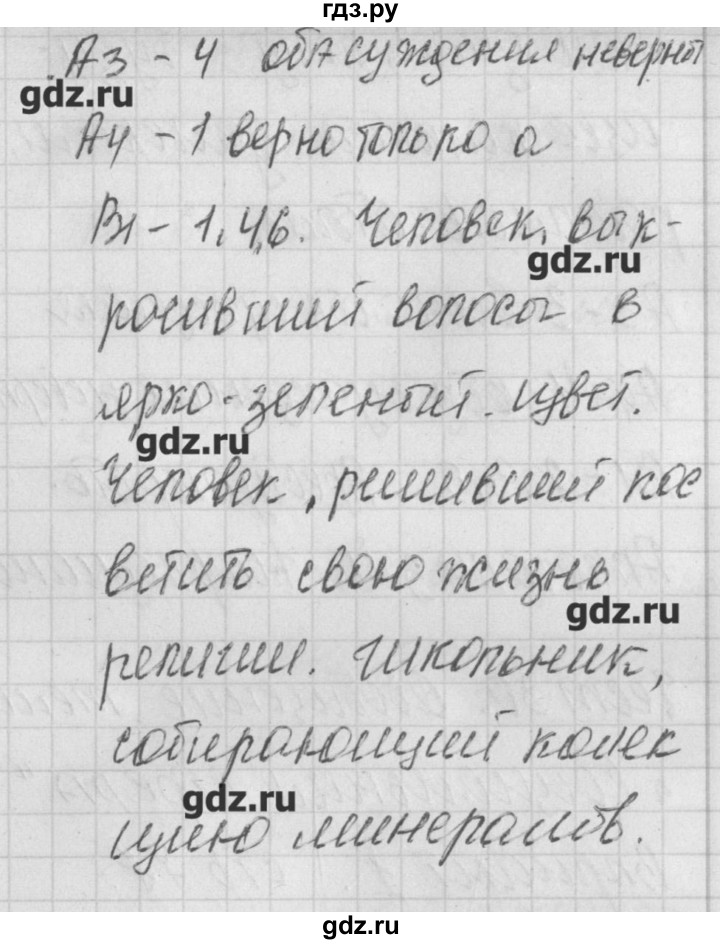 гдз.ру
А3 - 4 оба суждения неверны
gdz.ru
А4 - 1 верно только а
В1 - 1,4,6. Человек, вык-
gdz.ru
расивший волосы в
ярко-зеленый цвет.
gdz.ru
Человек, решивший пос
ветить свою жизнь
gdz.ru
религии. Школьник,
собирающий колек
gdz.ru
цию минералов.
gdz.ru